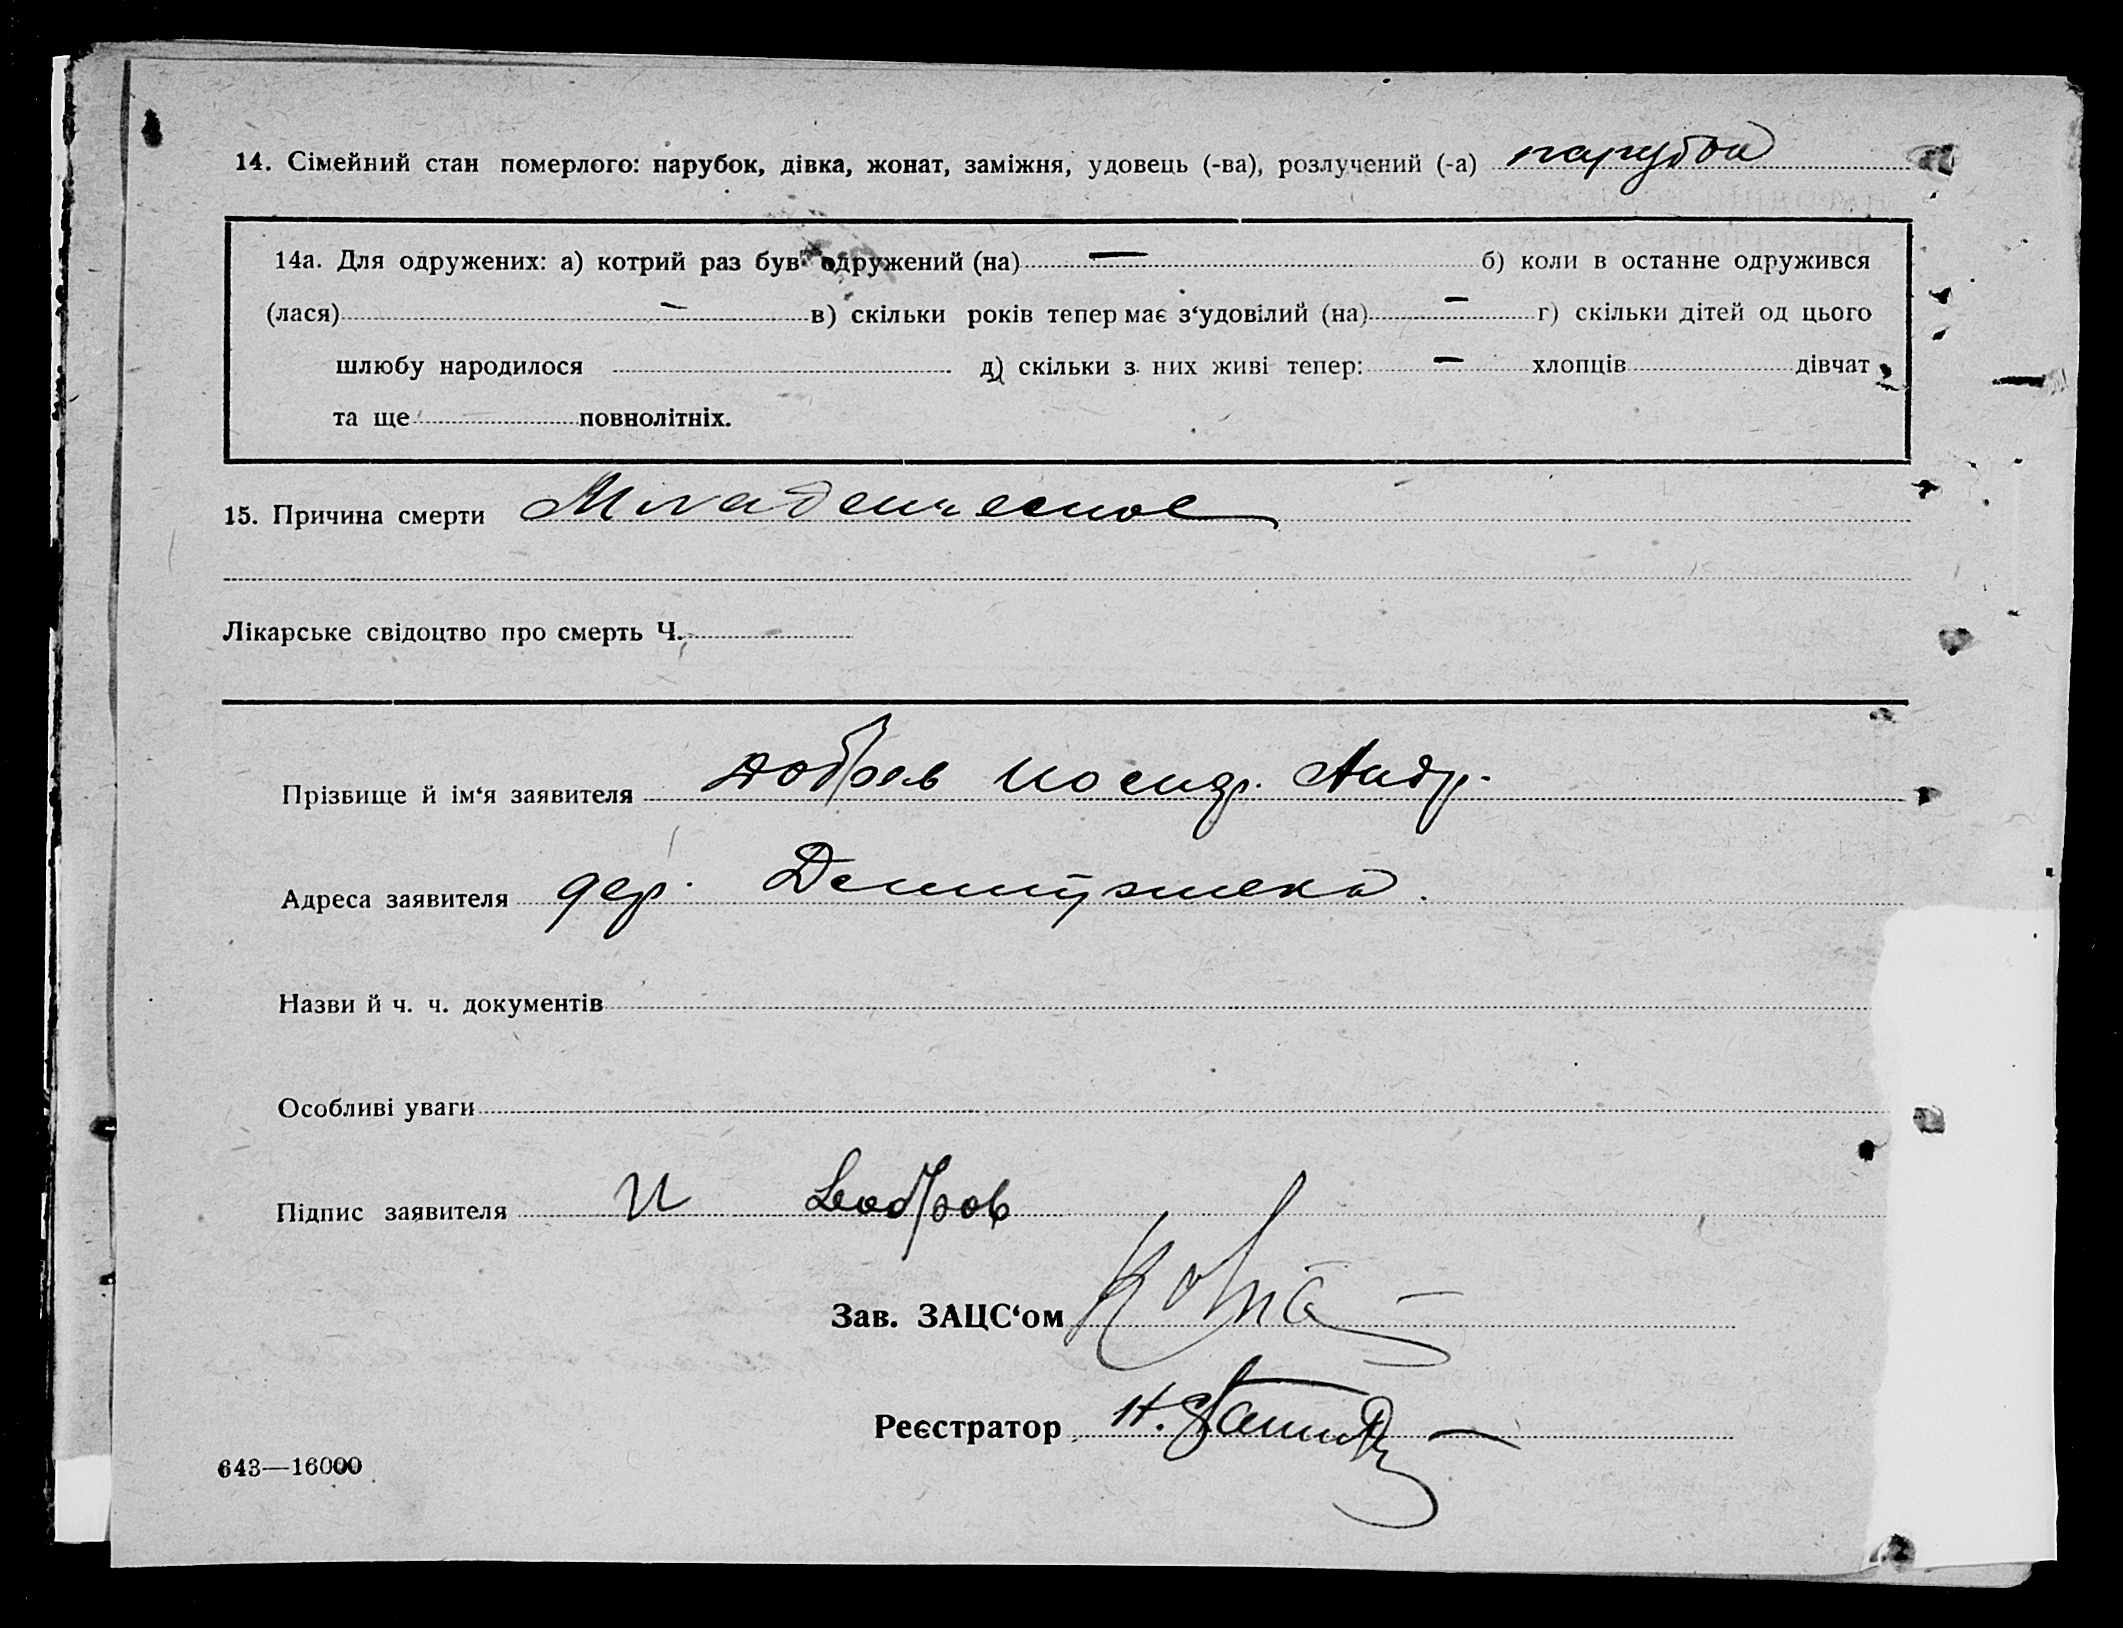 14. Сімейний стан померлого: парубок, дівка, жонат, заміжня, удовець (-ва), розлучений (-а) парубок
14а. Для одружених: а) котрий раз був одружений (на) — б) коли в останне одружився
(лася) — в) скільки років тепер має з‘удовілий (на) — г) скільки дітей од цього
шлюбу народилося д) скільки з них живі тепер: — хлопців дівчат
та ще повнолітніх.
15. Причина смерти Младенческое
Лікарське свідоцтво про смерть Ч.
Прізвище й ім‘я заявителя Добров Иосиф. Андр.
Адреса заявителя дер.
Назви й ч. ч. документів
Особливі уваги
Підпис заявителя И Добров
Зав. ЗАЦС‘ом
Реєстратор Н.
643—16000